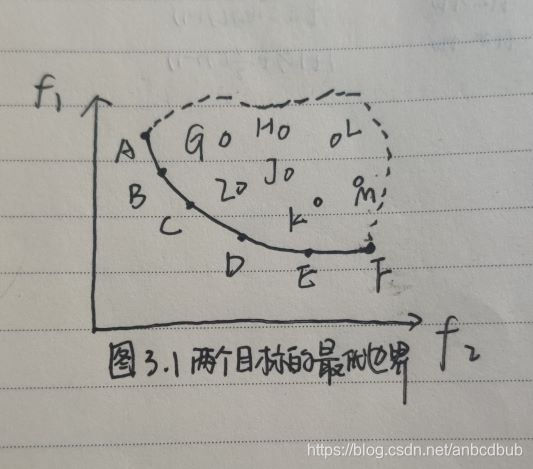 f₁
A
G
H
L
B
I
J
M
C
K
D
E
F
f₂
图3.1 两个目标的最优边界
https://blog.csdn.net/anbcdbub